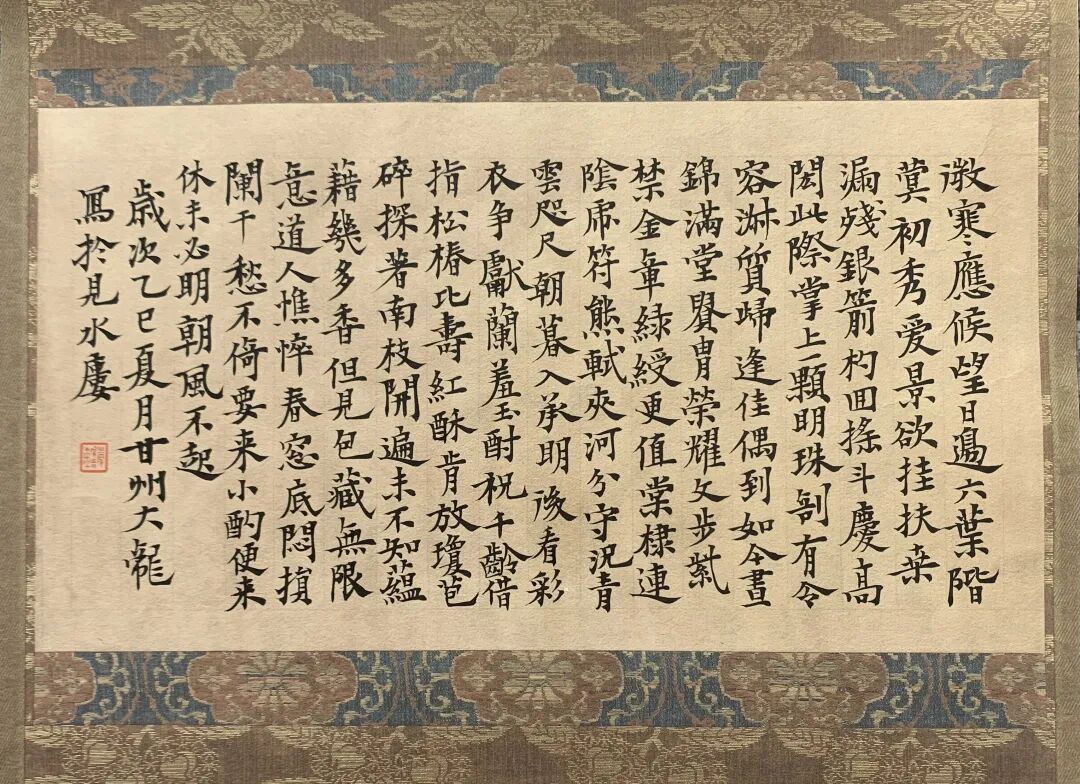 微寒應候望日邊六葉階
蓂初秀爱景欲挂扶桒
漏殘銀箭杓囬搖斗慶高
閎此際掌上一顆明珠剖有令
容淑質歸逢佳偶到如今晝
錦滿堂貴冑榮耀文步紫
禁金章緑綬更值棠棣連
陰虎符熊軾夾河分守況青
雲咫尺朝暮入承明後看彩
衣争獻蘭羞玉酎祝千齡借
指松椿比壽紅酥肯放瓊苞
碎探著南枝開遍未不知蘊
藉幾多香但見包藏無限
意道人憔悴春窓底悶損
闌干愁不倚要来小酌便来
休未必明朝風不起
歲次乙巳夏月甘州大龍
寫於見水廔